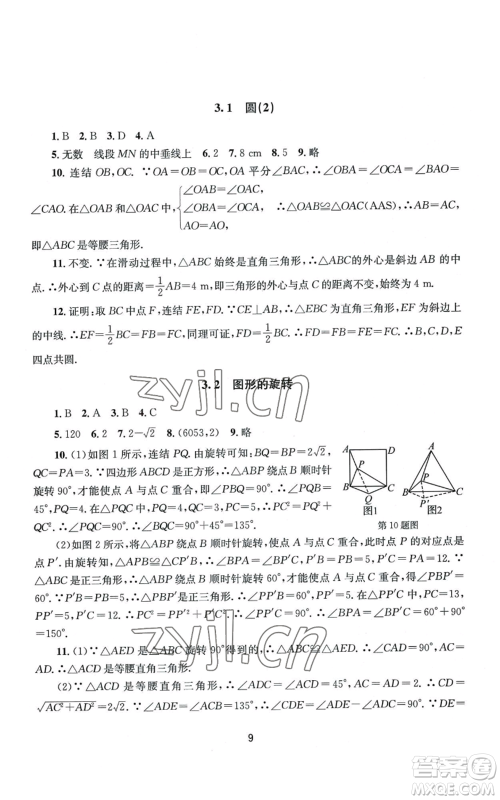 3.1 圆(2)
1. B 2. B 3. D 4. A
5. 无数 线段 MN 的中垂线上 6. 2 7. 8 cm 8. 5 9. 略
10. 连结 OB, OC. ∵OA=OB=OC, ∵OA 平分∠BAC, ∴∠OBA=∠OCA=∠BAO=
∠CAO. 在△OAB 和△OAC 中, {∠OAB=∠OAC, ∠OBA=∠OCA, AO=AO. ∴△OAB≌△OAC(AAS), ∴AB=AC,
即△ABC 是等腰三角形.
11. 不变. ∵在滑动过程中, △ABC 始终是直角三角形, ∴△ABC 的外心是斜边 AB 的中
点. ∴外心到 C 点的距离是 1/2 AB=4 m, 即△ABC 的外心与点 C 的距离不变, 始终为 4 m.
12. 证明: 取 BC 中点 F, 连结 EF, DF. ∵CE⊥AB, ∴△BCE 为直角三角形, EF 为斜边上
的中线. ∴EF=1/2 BC=BF=FC, 同理可证, DF=BF=FC. ∴FD=FC=FB=FE. ∴B, C, D, E
四点共圆.
3.2 图形的旋转
1. B 2. A 3. B 4. C
5. 120 6. 2 7. 2-√2 8. (6053, 2) 9. 略
10. (1)如图 1 所示, 连结 PQ. 由旋转可知: BQ=BP=2√2,
QC=PA=3. ∵四边形 ABCD 是正方形, ∴△ABP 绕点 B 顺时针
旋转 90°, 才使点 A 与 C 重合, 即∠PBQ=90°. ∴∠PQB=45°,
PQ=4. 在△PQC 中, PQ=4, QC=3, PC=5, ∴PC²=PQ²+
QC². ∴∠PQC=90°. ∴∠BQC=90°+45°=135°.
A D P B C Q 图1
A P B C P′ 图2
第 10 题图
(2)如图 2 所示, 将此时点 P 的对应点是
点 P′. 由旋转知, △APB≌△CP′B, ∴∠BPA=∠BP′C, P′B=PB=5, P′C=PA=12. ∵
△ABC 是正三角形, ∴△ABP 绕点 B 顺时针旋转 60°, 才使点 A 与 C 重合, 得∠PBP′=60°.
∵PB=P′B, ∴△PBP′是正三角形. ∴PP′=PB=5, ∠BP′P=60°. 在△PP′C 中, PC=13,
PP′=5, P′C=12, ∴PC²=PP′²+P′C². ∴∠PP′C=90°. ∴∠BPA=∠BP′C=60°+90°
=150°.
11. (1)∵△AED 是△ABC 旋转 90°得到的, ∴△AED≌△ABC. ∴∠CAD=90°, AC=
AD. ∴△ACD 是等腰直角三角形.
(2)∵△ACD 是等腰直角三角形, ∴∠ADC=∠ACD=45°, AD=AC=2. ∴CD=
√(AC²+AD²)=2√2. ∵∠ADE=∠ACB=45°, ∴∠CDE=∠ADE+∠ADC=90°. ∵DE=
9
zyjl.cn
zyjl.cn